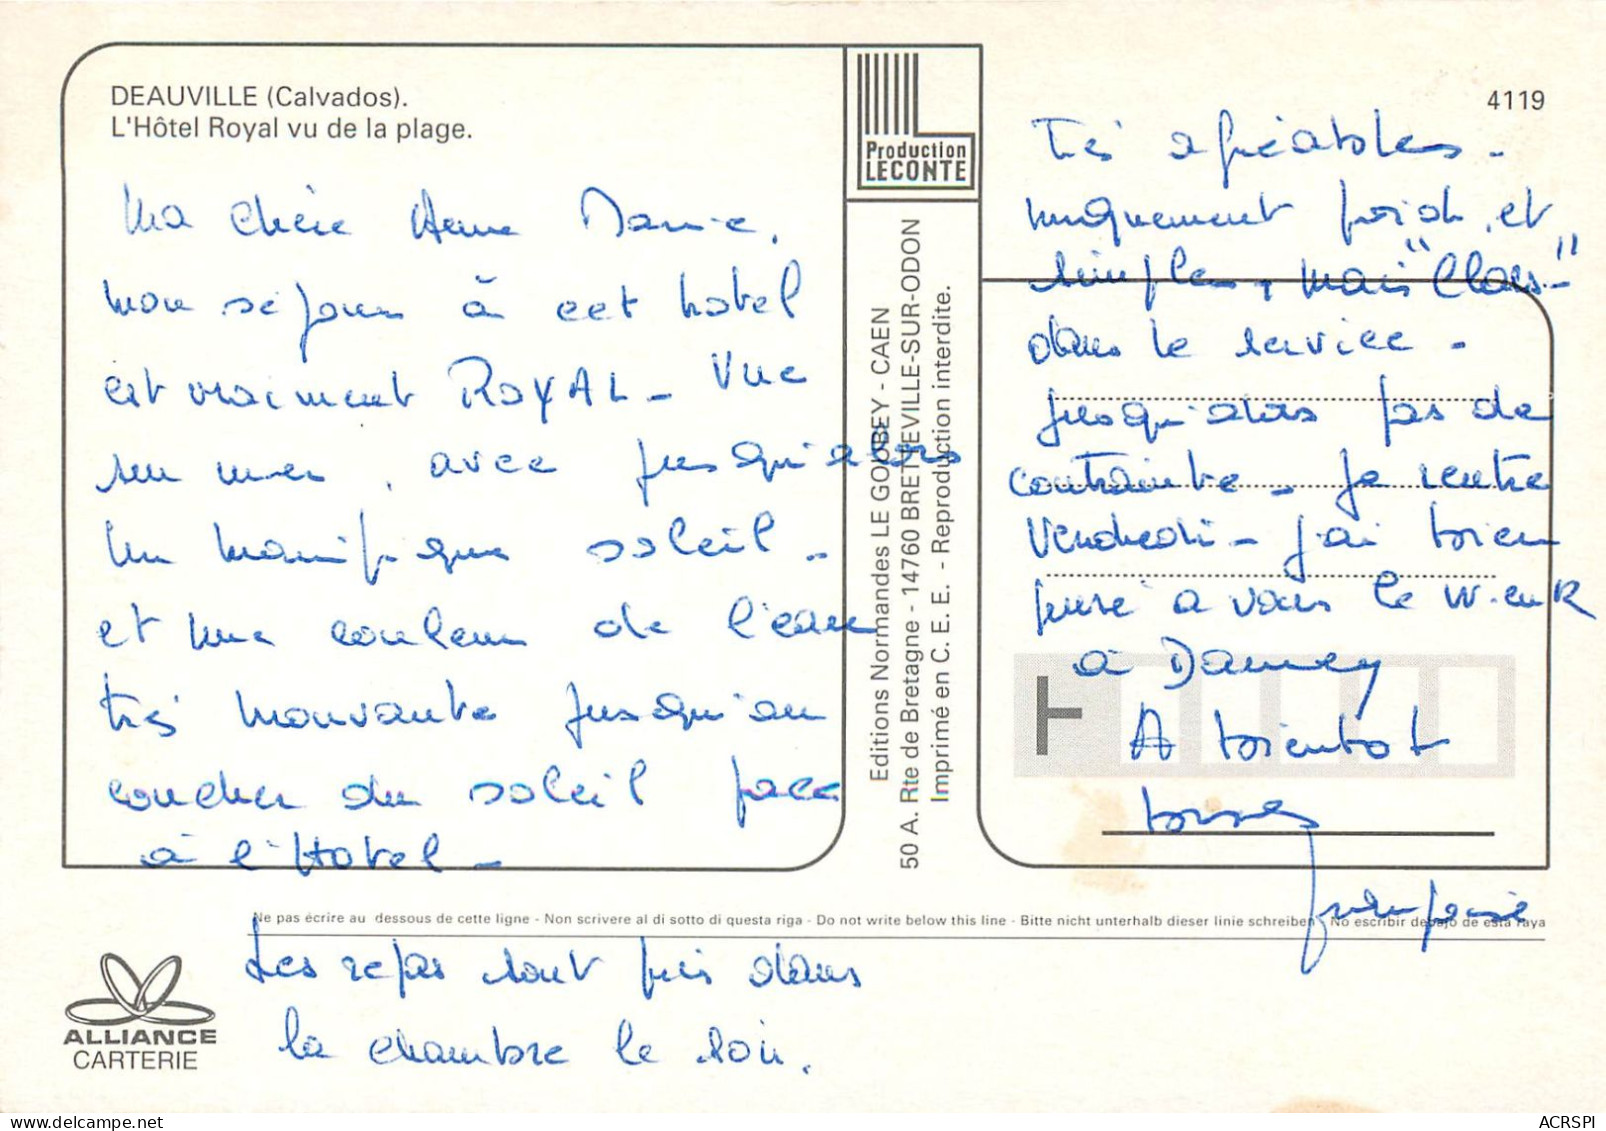 DEAUVILLE (Calvados).
L'Hôtel Royal vu de la plage.
Ma chère Anne Marie,
mon séjour à cet hotel
est vraiment ROYAL - Vue
sur mer, avec jusqu'alors
un manifique soleil -
et une couleur de l'eau
très mouvante jusqu'au
coucher du soleil face
à l'Hotel -
Les repas sont pris dans
la chambre le soir.
ALLIANCE
CARTERIE
Production
LECONTE
Editions Normandes LE GOUBEY - CAEN
50 A. Rte de Bretagne - 14760 BRETTEVILLE-SUR-ODON
Imprimé en C. E. E. - Reproduction interdite.
4119
Très agréables -
uniquement froid, et
simples, mais "Class"
dans le service -
jusqu'alors pas de
contrainte - Je rentre
Vendredi - J'ai bien
pensé a vous le w.enR
à
A bientot
bises
Françoise
Ne pas écrire au dessous de cette ligne - Non scrivere al di sotto di questa riga - Do not write below this line - Bitte nicht unterhalb dieser linie schreiben - No escribir debajo de esta raya
ACRSPI